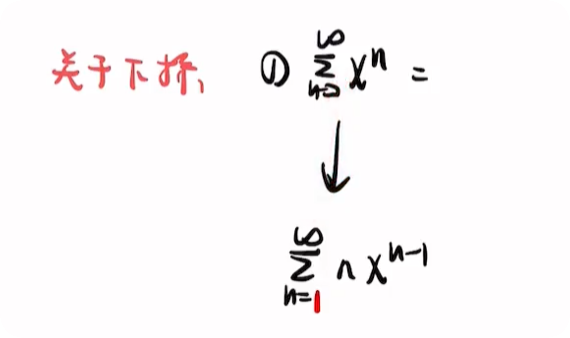 关于下标, ① \sum_{n=0}^{\infty} x^n =
↓
\sum_{n=1}^{\infty} n x^{n-1}